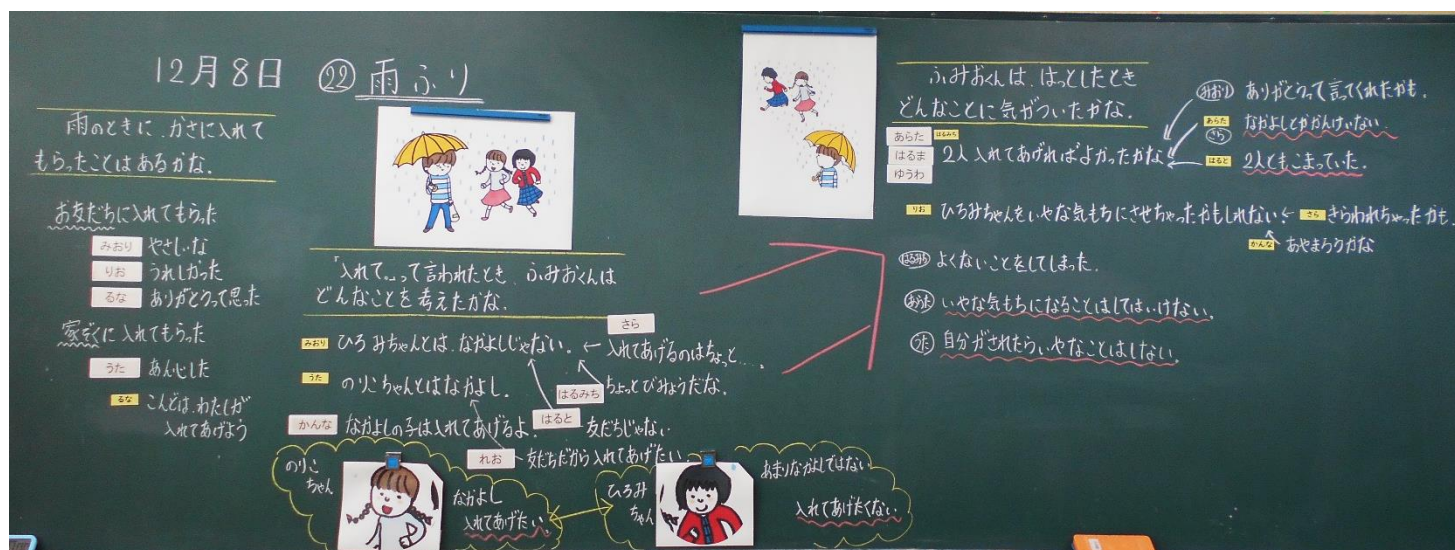 12月8日 ㉒ 雨ふり
雨のときに、かさに入れて
もらったことはあるかな。
お友だちに入れてもらった
みおり やさしいな
りお うれしかった
るな ありがとうって思った
家ぞくに入れてもらった
うた あんしんした
るな こんどは、わたしが
入れてあげよう
「入れて。」って言われたとき、ふみおくんは
どんなことを考えたかな。
みおり ひろみちゃんとは、なかよしじゃない。
さら
入れてあげるのはちょっと…。
うた のりこちゃんとはなかよし。
はるみち ちょっとびみょうだな。
かんな なかよしの子は入れてあげるよ。
はると 友だちじゃない
れお 友だちだから入れてあげたい。
のりこ
ちゃん
なかよし
入れてあげたい。
ひろみ
ちゃん
あまりなかよしではない
入れてあげたくない
ふみおくんは、はっとしたとき
どんなことに気がついたかな。
あらた はるみち
はるま
ゆうわ
2人入れてあげればよかったかな
みおり ありがとうって言ってくれたかも。
あらた
さら
なかよしとかかんけいない。
はると 2人ともこまっていた。
りお ひろみちゃんをいやな気もちにさせちゃったかもしれない
さら きらわれちゃったかも。
かんな あやまろうかな
はるみち よくないことをしてしまった。
あらた いやな気もちになることはしてはいけない。
うた 自分がされたらいやなことはしない。